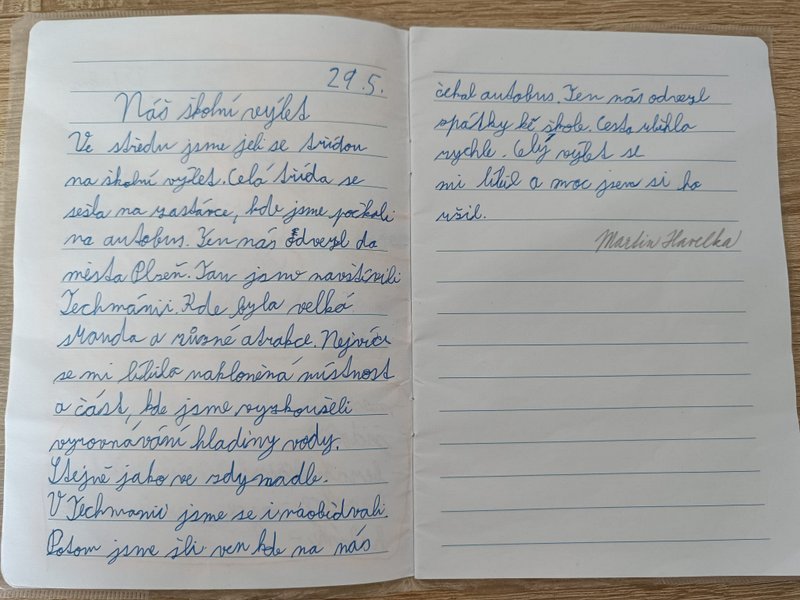 29.5.
Náš školní výlet
Ve středu jsme jeli se třídou
na školní výlet. Celá třída se
sešla na zastávce, kde jsme počkali
na autobus. Ten nás odvezl do
města Plzeň. Tam jsme navštívili
Techmánii. Kde byla velká
sranda a různé atrakce. Nejvíce
se mi líbila nakloněná místnost
a část, kde jsme vyzkoušeli
vyrovnávání hladiny vody.
Stejně jako ve zdymadle.
V Techmanii jsme se i naobědvali.
Potom jsme šli ven kde na nás
čekal autobus. Ten nás odvezl
zpátky ke škole. Cesta utíkla
rychle. Celý výlet se
mi líbil a moc jsem si ho
užil.
Martin Havelka